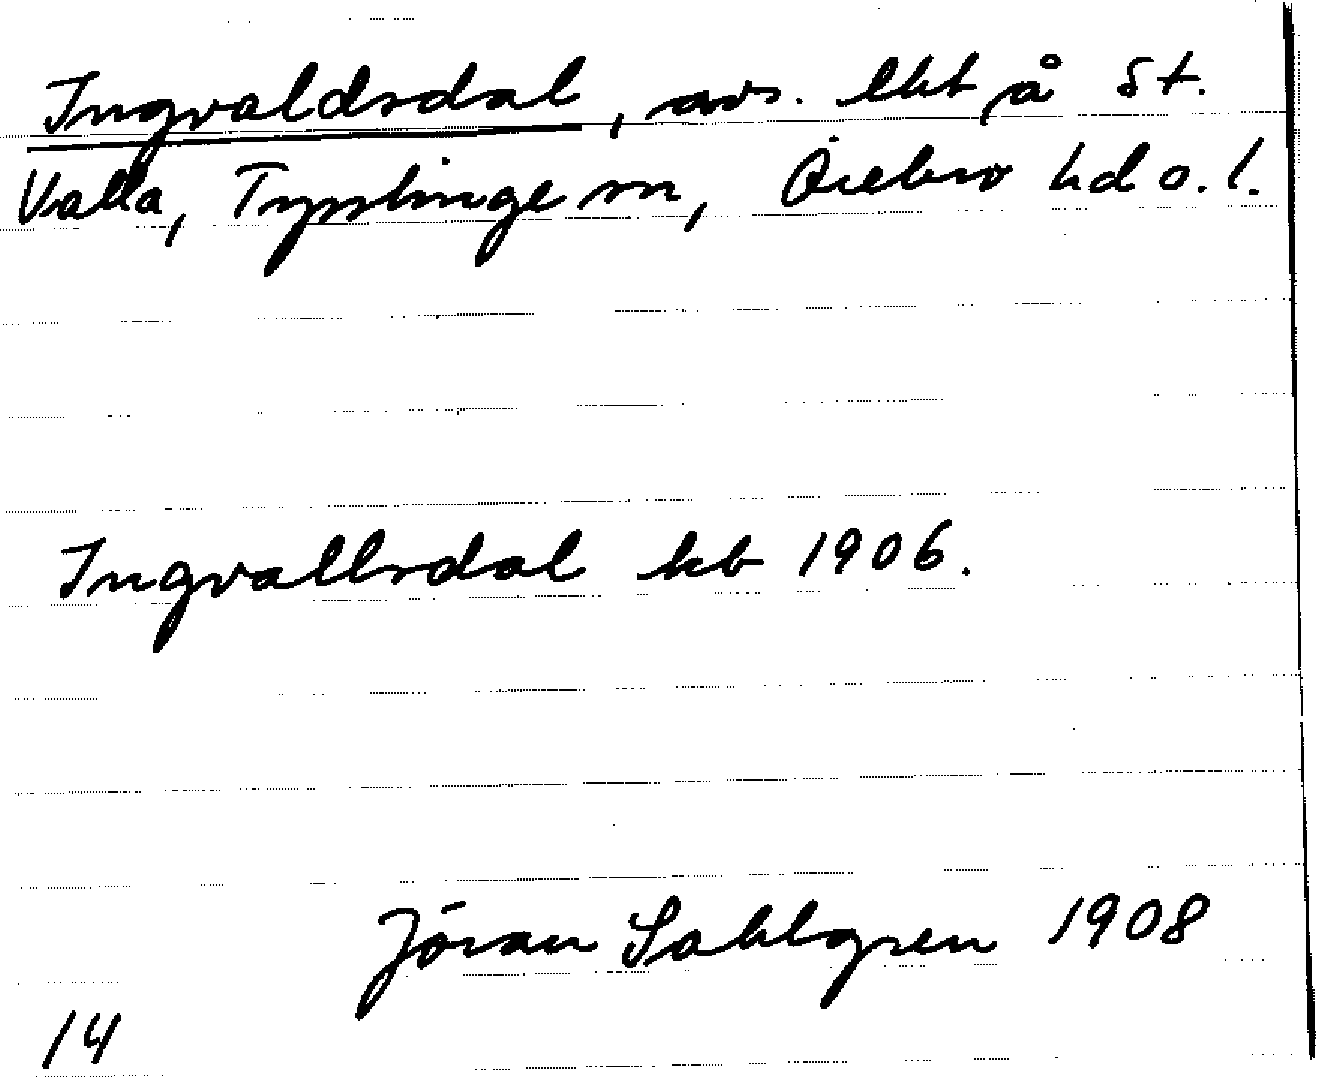 Ingvaldsdal, avs. lht å St.
Valla, Tysslinge sn, Örebro hd o. l.
Ingvallsdal kb 1906.
Jöran Sahlgren 1908
14